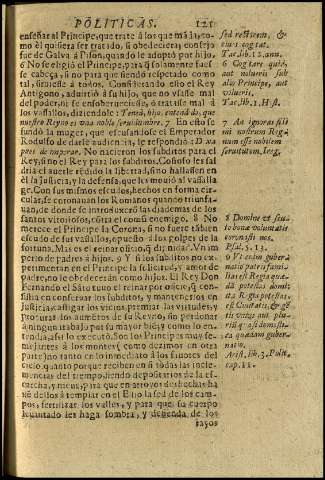 POLITICAS. 121
enseñar al Principe, que trate à los que mãda, co-
mo èl quisiera ser tratado, si obedeciera; consejo
fue de Galva à Pison, quando le adoptò por hijo.
6 No se eligiò el Principe, para q̃ solamente fuesse
cabeça, si no para que siendo respetado como
tal, sirviesse à todos. Considerando esto el Rey
Antigono, advirtiò à su hijo, que no vsasse mal
del poder, ni se ensoberveciesse, ò tratasse mal à
los vassallos, diziendole: 7 Tened, hijo, entendido, que
nuestro Reyno es vna noble servidumbre. En esto se
fundò la muger, que escusandose el Emperador
Rodulfo de darle audiencia, le respondiò: D
No nacieron los subditos para el
Rey, si no el Rey para los subditos. Costoso les sal-
dria el averle rendido la libertad, si no hallassen en
èl la justicia, y la defensa, que les moviò al vassalla-
ge. Con sus mismos escudos, hechos en forma cir-
cular, se coronavan los Romanos quando triunfa-
van, de donde se introduxeron las diademas de los
Santos victoriosos, contra el comũ enemigo. 8 No
merece el Principe la Corona, si no fuere tãbien
escudo de sus vassallos, opuesto à los golpes de la
fortuna. Mas es el reinar oficio, q̃ dignidad. Vn im-
perio de padres à hijos. 9 Y si los subditos no ex-
perimentan en el Principe la solicitud, y amor de
padre, no le obedeceràn como hijos. El Rey Don
Fernando el Sãto tuvo el reinar por oficio, q̃ con-
sistia en conservar los subditos, y mantenerlos en
justicia, castigar los vicios, premiar las virtudes, y
procurar los aumentos de su Reyno, sin perdonar
à ningun trabajo por su mayor biẽ; y como lo en-
tendia, assi lo executò. Son los Principes muy se-
mejantes à los montes (como dezimos en otra
parte) no tanto en lo inmediato à los favores del
cielo, quanto porque reciben en sì todas las incle-
mencias del tiempo, siendo depositarios de la es-
carcha, y nieve, para que en arroyos deshechas ba-
xẽ dellos à templar en el Estio la sed de los cam-
pos, fertilizar los valles, y para que su cuerpo
levantado les haga sombra, y defienda de los
rayos
6 Cogitare quid,
aut volueris sub
alio Principe, aut
nolueris.
Tac. lib. 1. Hist.
7 An ignoras fili
mi nostrum Reg-
num esse nobilem
servitutem.
8 Domine vt scu-
to bonæ voluntatis
coronasti nos.
Psal. 5. 13.
9 Vt enim guber-
natio patris fami-
lias est Regia quæ-
dã potestas domi:
ita Regia potestas
est Civitatis, & gẽ-
tis vnius aut plu-
rium quasi domesti-
ca quædam guber-
natio.
Arist. lib. 3. Polit.
cap. 11.